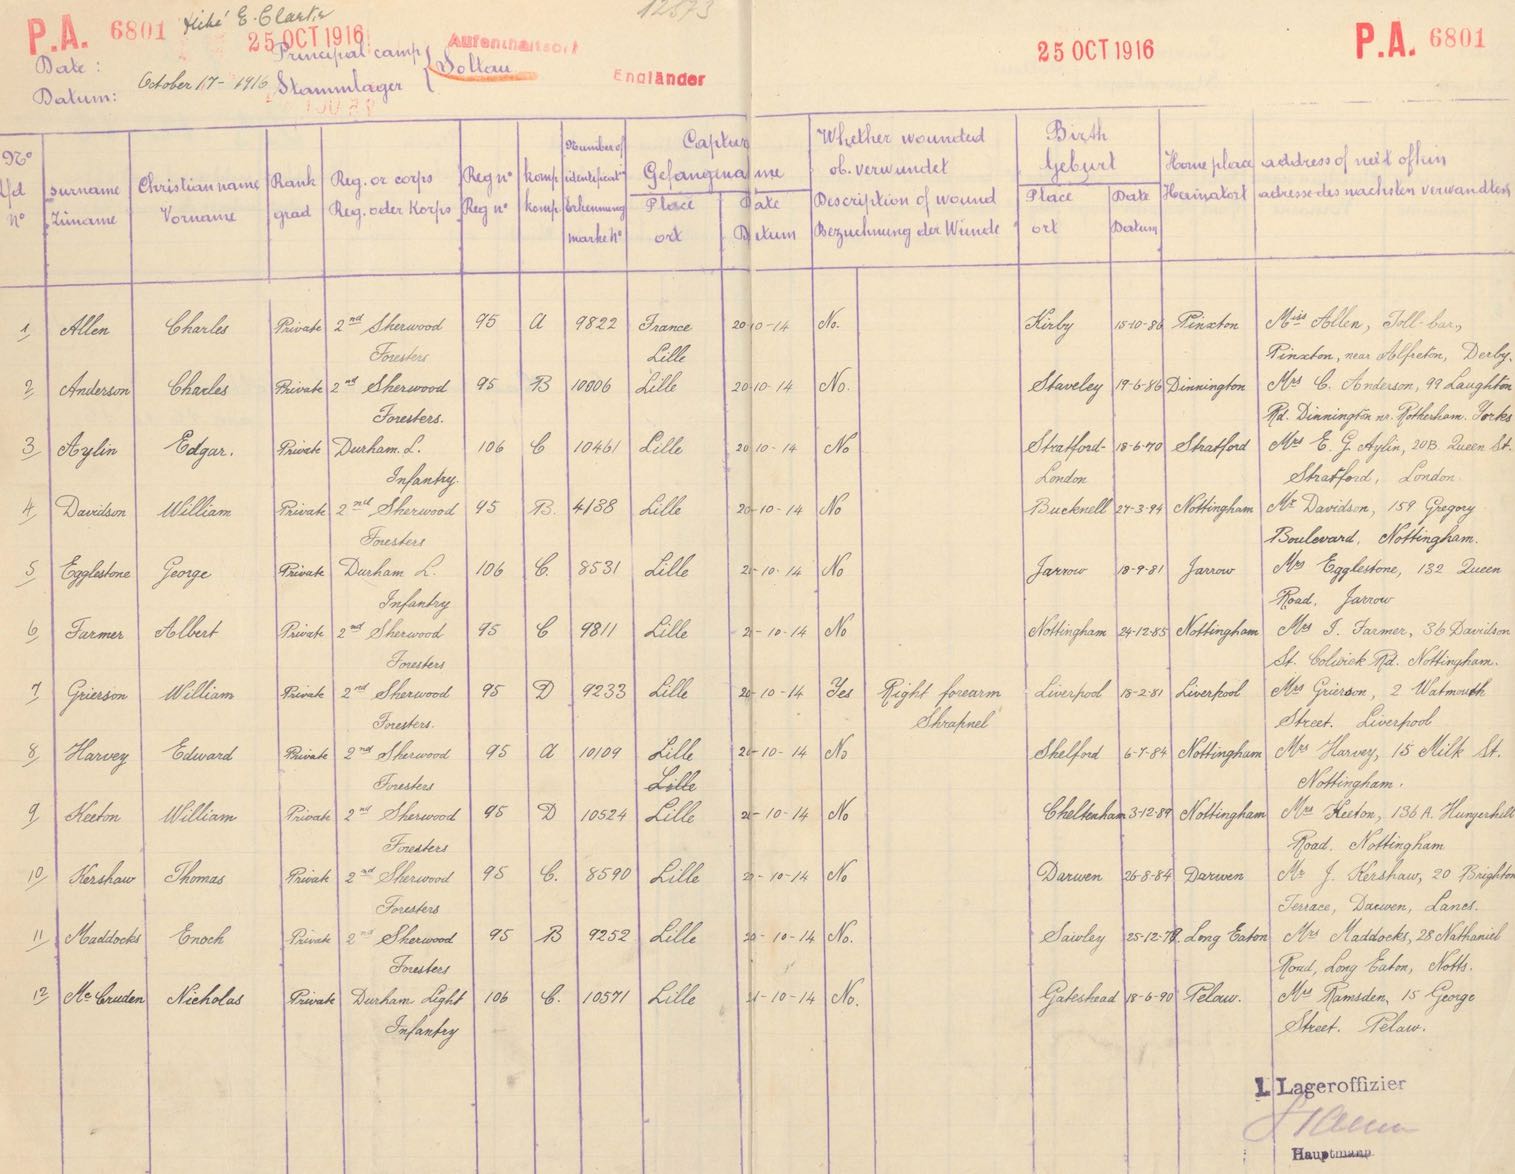 P.A. 6801
E. Clarke
25 OCT 1916
Aufenthaltsort
Engländer
25 OCT 1916
P.A. 6801
Date: Principal camp
Datum: October 17- 1916 Stammlager Soltau
Nº Lfd Nº
surname Zuname
Christian name Vorname
Rank grad
Reg. or corps Reg. oder Korps
Reg nº Reg nº
komp komp.
Number of identificatº Erkennung marke Nº
Capture Gefangennahme
Place ort
Date Datum
Whether wounded ob. verwundet
Description of wound Bezeichnung der Wunde
Birth Geburt
Place ort
Date Datum
Home place Heimatort
address of next of kin adresse des nächsten verwandten
1/ Allen Charles Private 2nd Sherwood 95 A 9822 France 20-10-14 No. Kirby 15-10-86 Pinxton Miss Allen, Toll-bar,
Foresters Lille Pinxton, near Alfreton, Derby.
2/ Anderson Charles Private 2nd Sherwood 95 B 10006 Lille 20-10-14 No. Staveley 19-6-86 Dinnington Mrs C. Anderson, 99 Laughton
Foresters. Rd. Dinnington nr. Rotherham. Yorks
3/ Aylin Edgar. Private Durham. L. 106 C 10461 Lille 20-10-14 No Stratford- 18-6-70 Stratford Mrs E. G. Aylin, 20B. Queen St.
Infantry. London Stratford, London.
4/ Davidson William Private 2nd Sherwood 95 B. 4138 Lille 20-10-14 No Bucknell 27-3-94 Nottingham Mr Davidson, 159 Gregory
Foresters Boulevard, Nottingham.
5/ Egglestone George Private Durham L. 106 C. 8531 Lille -10-14 No Jarrow 18-9-81 Jarrow Mrs Egglestone, 132 Queen
Infantry Road, Jarrow
6/ Farmer Albert Private 2nd Sherwood 95 C 9811 Lille -10-14 No Nottingham 24-12-85 Nottingham Mrs I. Farmer, 36 Davidson
Foresters St. Colwick Rd. Nottingham.
7/ Grierson William Private 2nd Sherwood 95 D 9233 Lille 20-10-14 Yes Right forearm Liverpool 18-2-81 Liverpool Mrs Grierson, 2 Watmouth
Foresters. Shrapnel Street. Liverpool
8/ Harvey Edward Private 2nd Sherwood 95 A 10109 Lille 20-10-14 No Shelford 6-7-84 Nottingham Mrs Harvey, 15 Milk St.
Foresters Lille Nottingham.
9/ Keeton William Private 2nd Sherwood 95 D 10524 Lille -10-14 No Cheltenham 3-12-89 Nottingham Mrs Keeton, 136A. Hungerhill
Foresters Road. Nottingham
10/ Kershaw Thomas Private 2nd Sherwood 95 C. 8590 Lille -10-14 No Darwen 26-8-84 Darwen Mr J. Kershaw, 20 Brighton
Foresters Terrace, Darwen, Lancs.
11/ Maddocks Enoch Private 2nd Sherwood 95 B 9252 Lille 20-10-14 No. Sawley 25-12-79. Long Eaton Mrs Maddocks, 28 Nathaniel
Foresters Road, Long Eaton, Notts.
12/ Mc Cruden Nicholas Private Durham Light 106 C. 10571 Lille 21-10-14 No. Gateshead 18-6-90 Pelaw. Mrs Ramsden, 15 George
Infantry Street. Pelaw.
1. Lageroffizier
Hauptmann